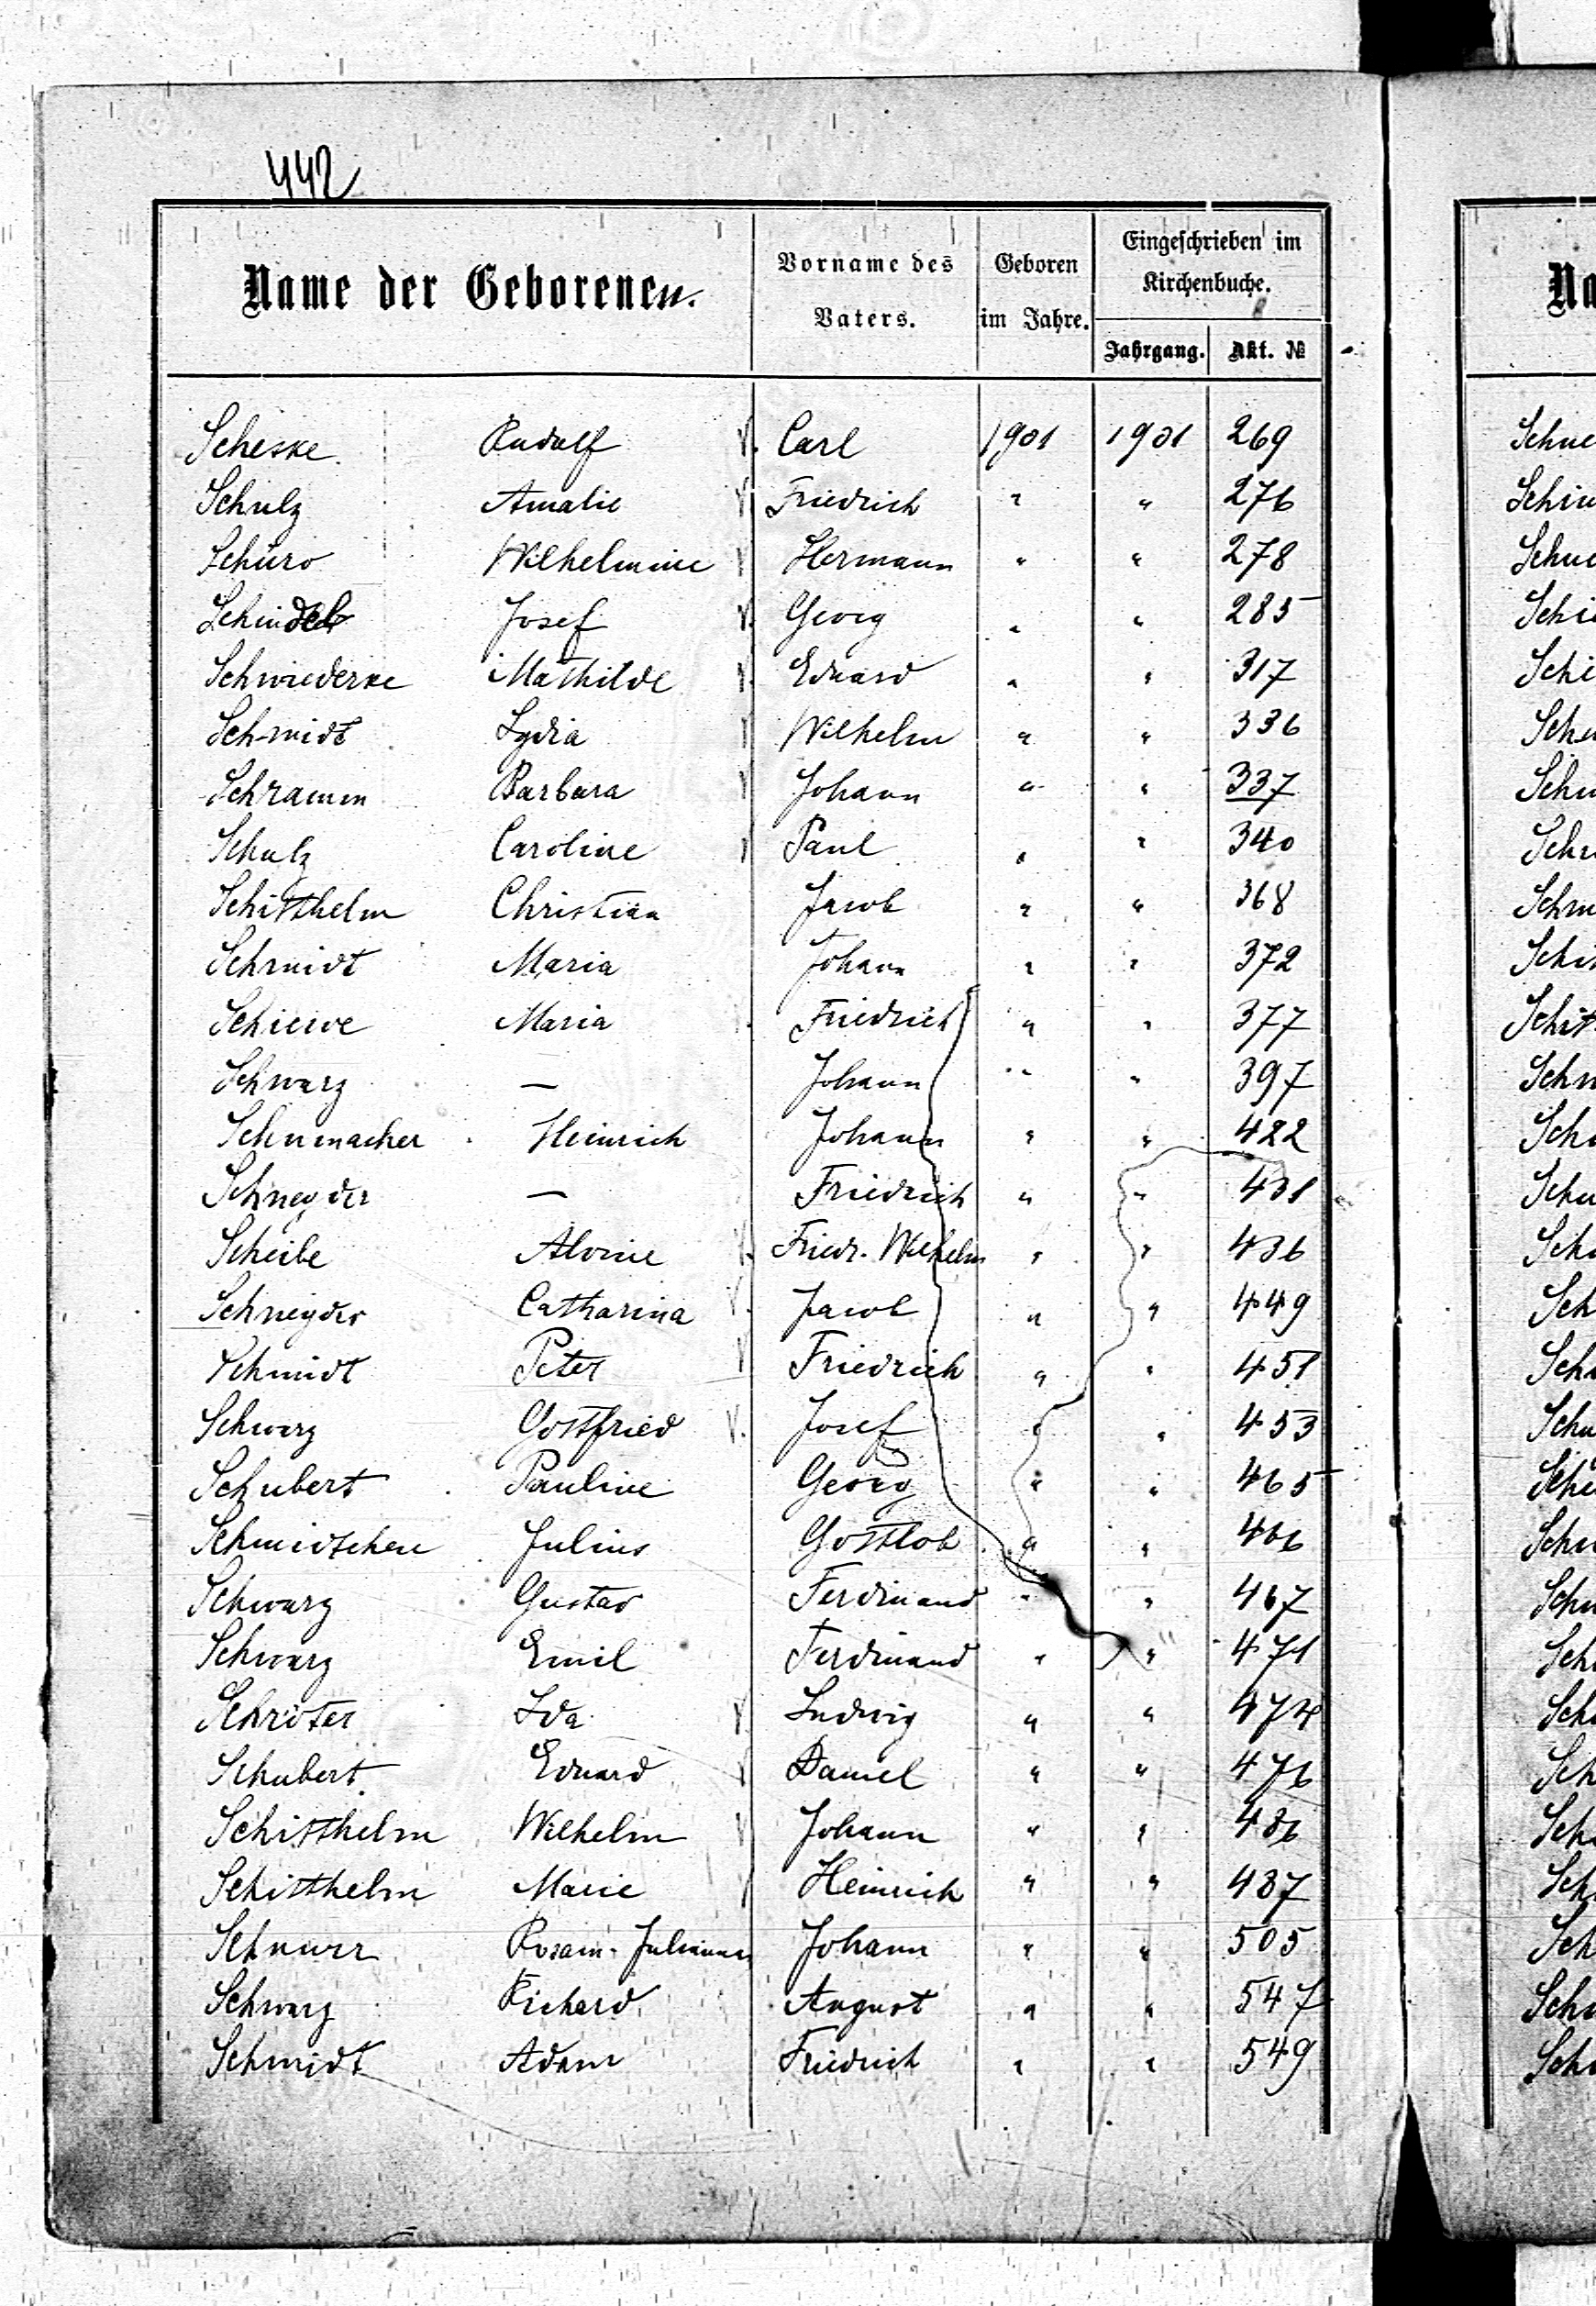 442
Name der Geborenen. Vorname des Vaters. Geboren im Jahre. Eingeschrieben im Kirchenbuche.
Jahrgang. Akt. №
Scheske Rudolf V. Carl 1901 1901 269
Schulz Amalie V Friedrich " " 276
Schüro Wilhelmine V Hermann " " 278
Schindel Josef V. Georg " " 285
Schwiederke Mathilde V. Eduard " " 317
Schmidt Lydia V Wilhelm " " 336
Schramm Barbara V Johann " " 337
Schulz Caroline V Paul " " 340
Schitthelm Christian Jacob " " 368
Schmidt Maria Johann " " 372
Schiewe Maria Friedrich " " 377
Schwarz — Johann " " 397
Schumacher Heinrich Johann " " 422
Schneyder — Friedrich " " 431
Scheibe Alvine V. Friedr. Wilhelm " " 436
Schneyder Catharina V. Jacob " " 449
Schmidt Peter V Friedrich " " 451
Schwarz Gottfried V. Josef " " 453
Schubert Pauline Georg " " 465
Schmidtchen Julius Gottlob " " 466
Schwarz Gustav Ferdinand " " 467
Schwarz Emil Ferdinand " " 471
Schröter Ida V Ludwig " " 474
Schubert Eduard V Daniel " " 476
Schitthelm Wilhelm V Johann " " 486
Schitthelm Marie V Heinrich " " 487
Schnurr Rosam- Julianna Johann " " 505
Schwarz Richard August " " 547
Schmidt Adam Friedrich " " 549